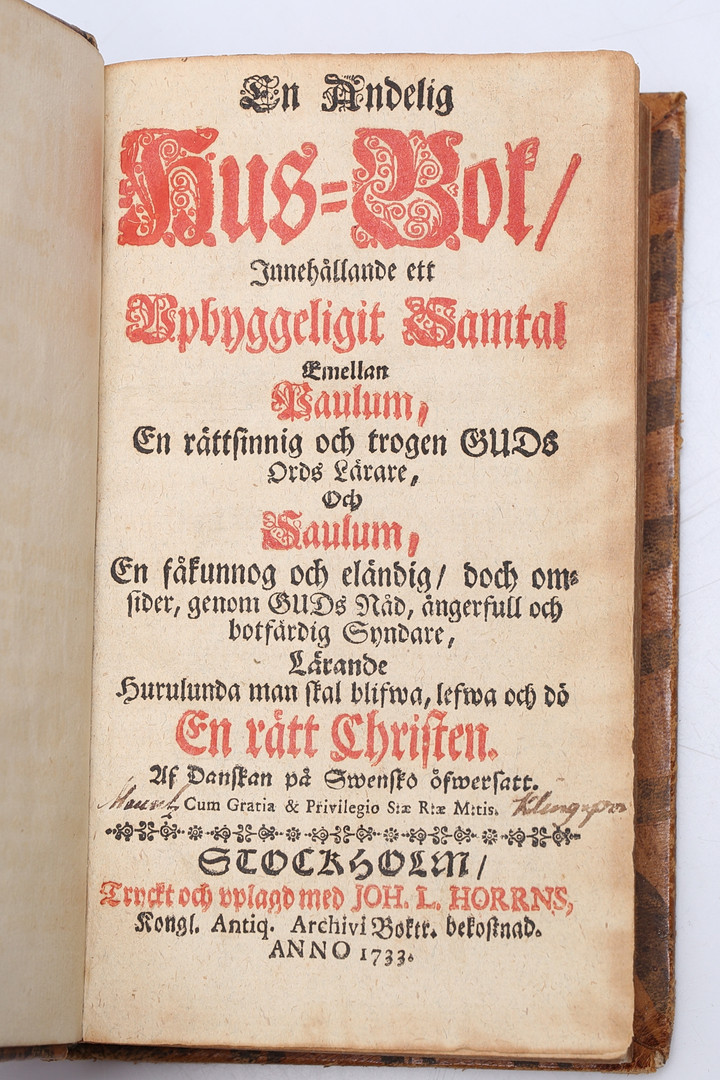 En Andelig
Hus=Bok/
Innehållande ett
Upbyggeligit Samtal
Emellan
Paulum,
En rättsinnig och trogen GUDS
Ords Lärare,
Och
Saulum,
En fåkunnog och eländig/ doch om=
sider, genom GUDs Nåd, ångerfull och
botfärdig Syndare,
Lärande
Hurulunda man skal blifwa, lefwa och dö
En rätt Christen.
Af Danskan på Swensko öfwersatt.
Cum Gratia & Privilegio S:æ R:æ M:tis. Klingspor
STOCKHOLM/
Tryckt och vplagd med JOH. L. HORRNS,
Kongl. Antiq. Archivi Boktr. bekostnad.
ANNO 1733.